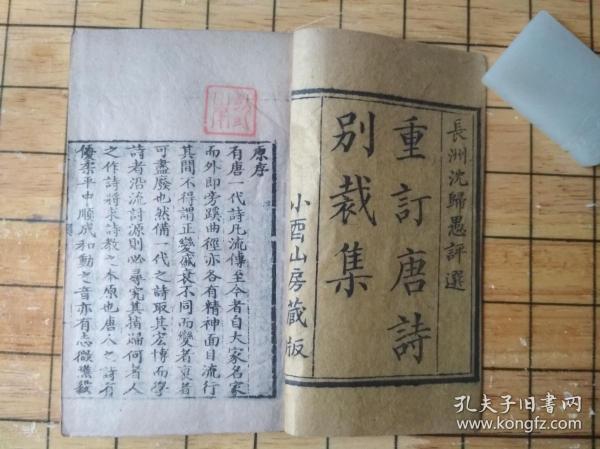 長洲沈歸愚評選
重訂唐詩
別裁集
小酉山房藏版
原序
有唐一代詩凡流傳至今者自大家名家
而外即旁蹊曲徑亦各有精神面目流行
其間不得謂正變盛衰不同而變者衰者
可盡廢也然備一代之詩取其宏博而學
詩者沿流討源則必尋究其指歸何者人
之作詩將求詩教之本原也唐人之詩有
優柔平中順成和動之音亦有志微噍殺
孔夫子旧书网